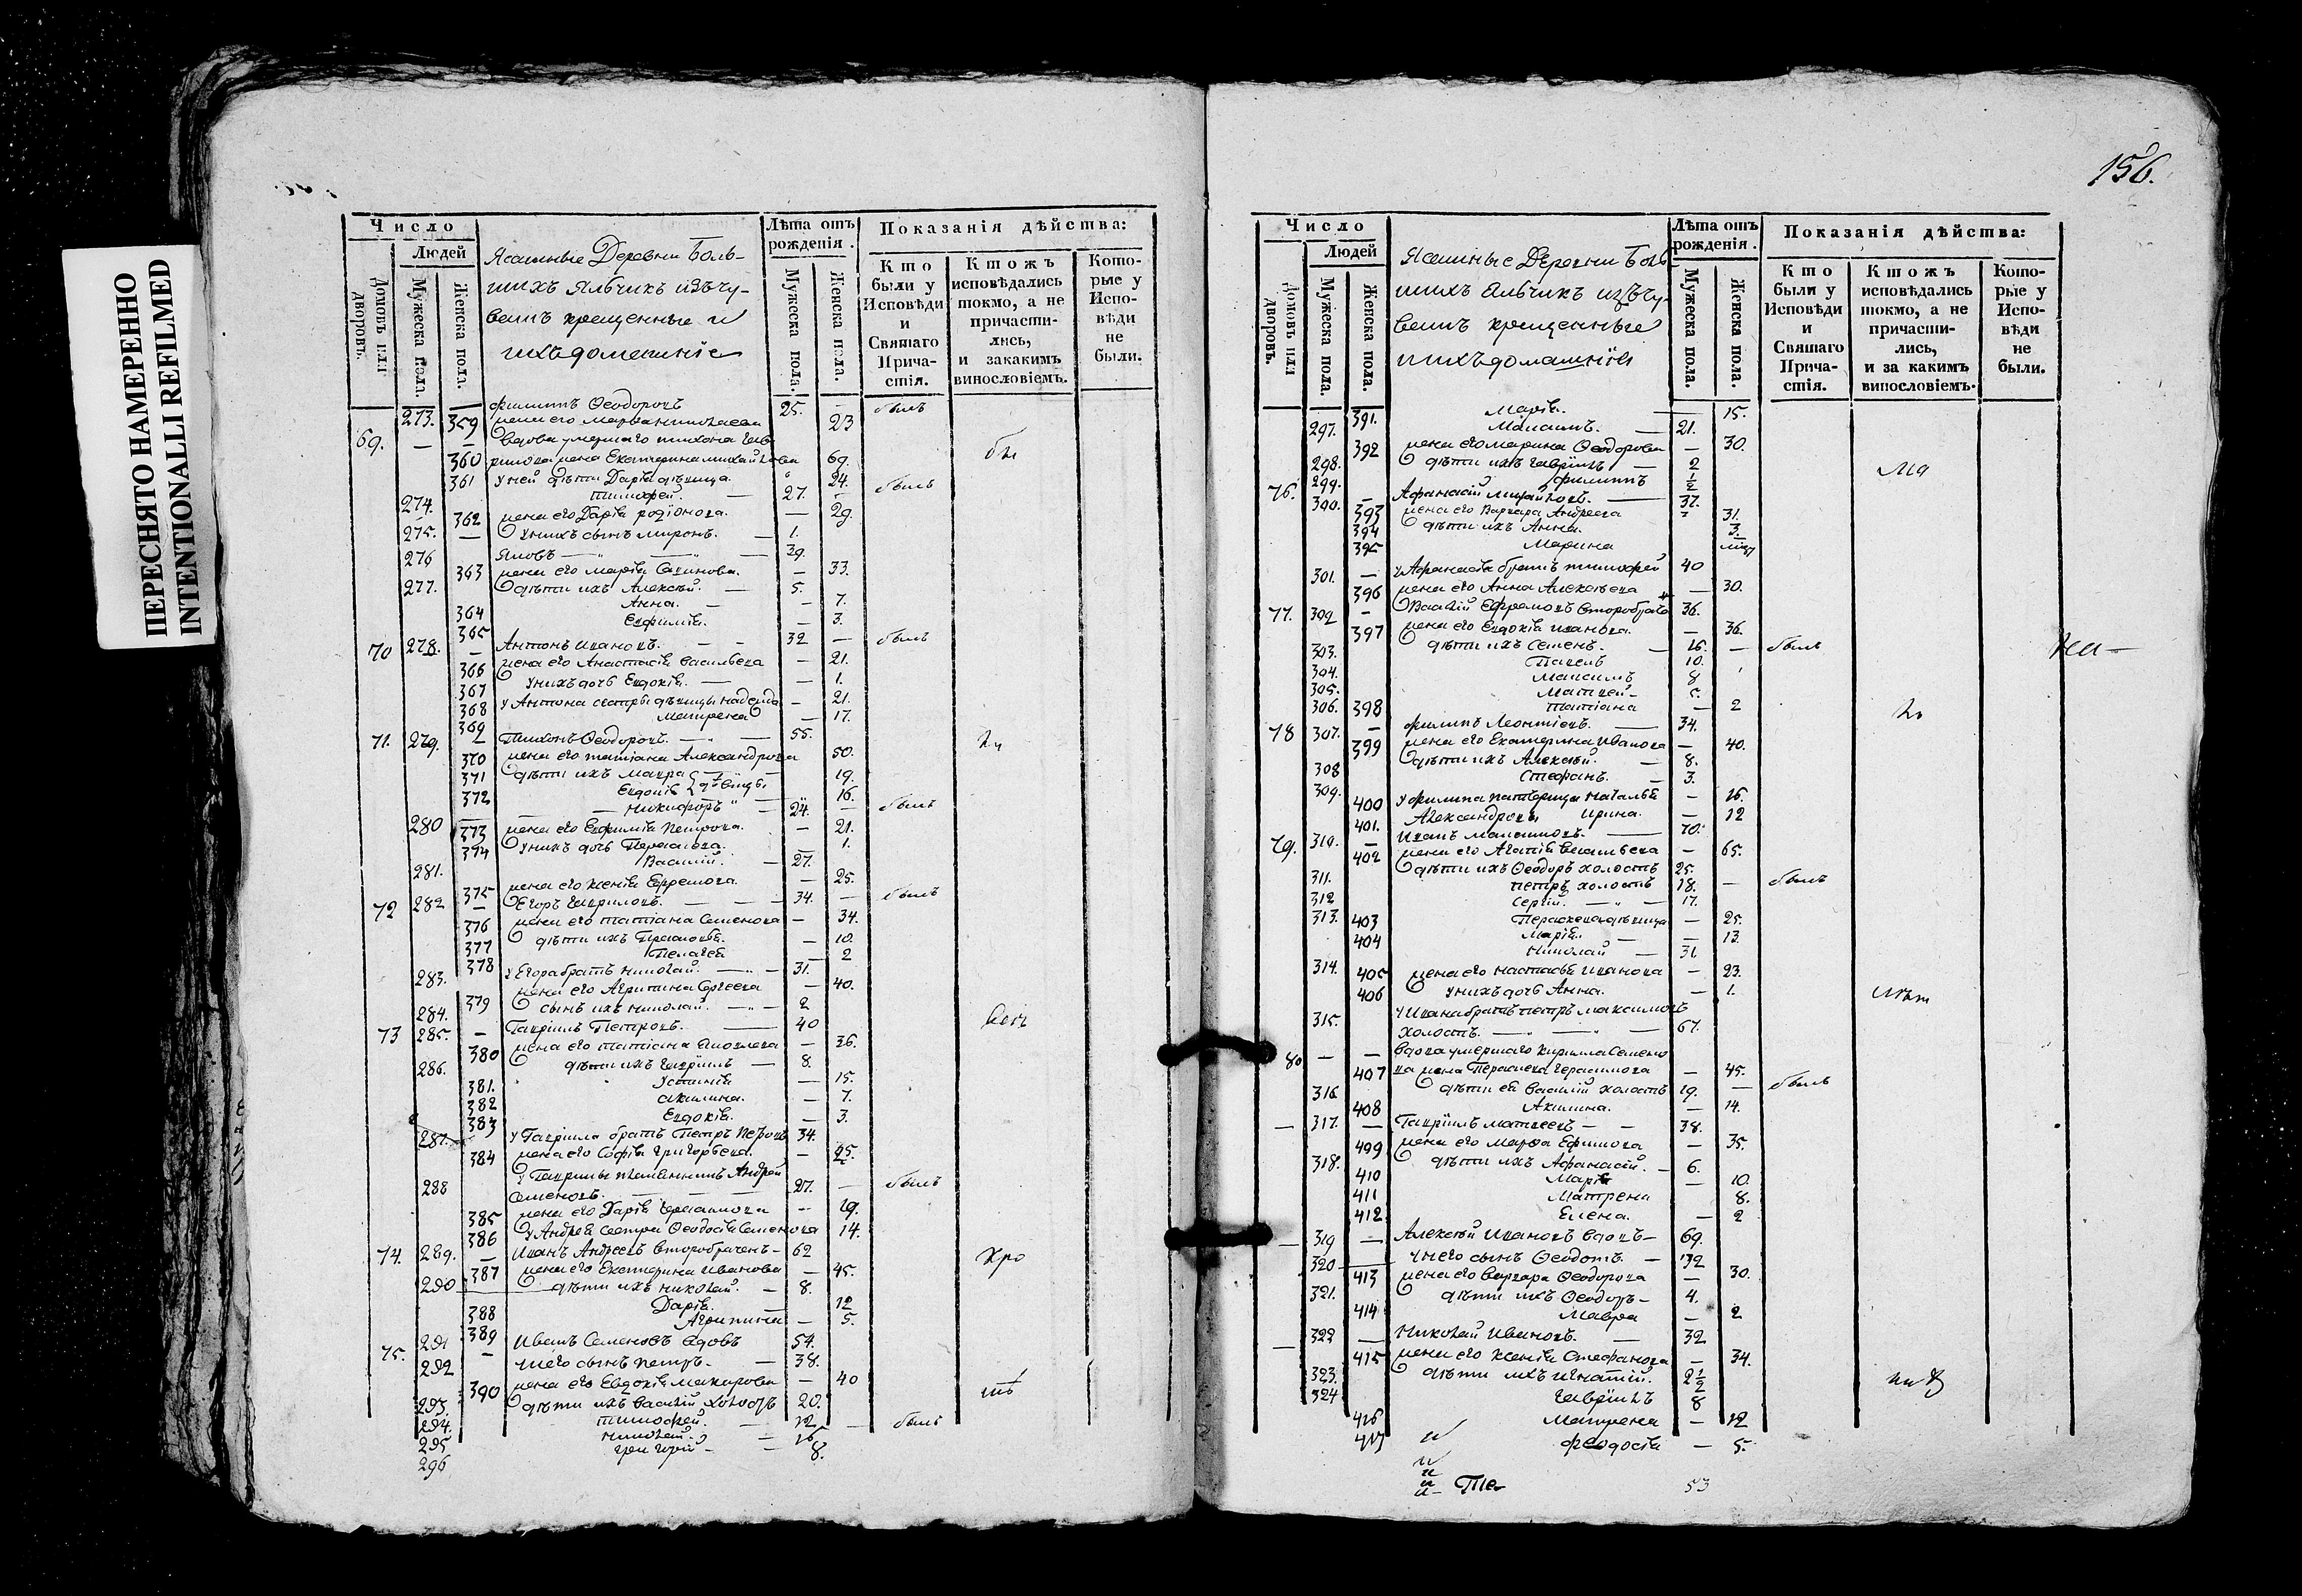 ПЕРЕСНЯТО НАМЕРЕННО
INTENTIONALLI REFILMED
Число
Людей
Домовъ или дворовъ.
Мужеска пола.
Женска пола.
Ясашные Деревни Боль-
шихъ Яльчикъ изъ чу-
вашъ крещенные и
ихъ домашніе
Лѣта отъ рожденія.
Мужеска пола.
Женска пола.
Показанія дѣйства:
Кто были у Исповѣди и Святаго Причастія.
Ктожъ исповѣдались токмо, а не причастились, и закакимъ винословіемъ.
Которые у Исповѣди не были.
273. Филиппъ Ѳеодоровъ 25. — былъ
359 жена его Марѳа Николаева 23
69. — — Вдова умершаго Тихона Гав-
360 рилова жена Екатерина Михайлова 69.
361 у ней дѣти Дарія дѣвица 24.
274. Тимофей. — 27. — былъ
362 жена его Дарія Родіонова. — 29.
275. — у нихъ сынъ Миронъ. — 1.
276 Яковъ — 39.
363 жена его Марія Савинова. — 33.
277. дѣти ихъ Алексѣй. — 5.
364 Анна. — — 7.
365 Евфимія. — 3.
70 278. — Антонъ Ивановъ. — — 32 — былъ
366 жена его Анастасія Васильева — 21.
367 у нихъ дочь Евдокія. — — 1.
368 у Антона сестры дѣвицы Надежда — 21.
369 Матрена — 17.
71. 279. — Тихонъ Ѳеодоровъ. — 55.
370 жена его Татіана Александрова 50.
371 дѣти ихъ Мавра 19.
372 Евдокія 16.
280 Никифоръ — 24. — былъ
373 жена его Евфимія Петрова. — 21.
374 у нихъ дочь Параскева. — 1.
281. Василій. — 27.
375 жена его Ксенія Ефремова. — 25.
72 282 — Егоръ Гавриловъ. — 34. — былъ
376 жена его Татіана Семенова — 34.
377 дѣти ихъ — 10.
378 Пелагея — 2
283. у Егора братъ Николай. — 31.
379 жена его Агрипина Сергеева — 40.
284. сынъ ихъ Николай. — 2
73 285. — Гавріилъ Петровъ. — 40
380 жена его Татіана Яковлева — 36.
286. дѣти ихъ Гавріилъ — 8.
381. Устинія — 15.
382 Акилина. — 7.
383 Евдокія. — 3.
287. у Гавріила братъ Петръ Петровъ 34.
384 жена его Софія Григорьева. — 25.
288 у Гаврилы племянникъ Андрей
Семеновъ. — 27. — былъ
385 жена его Дарія Герасимова — 19.
386 у Андрея сестра Ѳеодосія Семенова 14.
74. 289. — Иванъ Андреевъ второбраченъ — 62
387 жена его Екатерина Иванова — 45.
290 дѣти ихъ Николай. — 8.
388 Дарія. — 12
389 Агрипина — 5.
75. 291 — Иванъ Семеновъ вдовъ 54.
292 у него сынъ Петръ. — 38.
390 жена его Евдокія Макарова — 40
293. дѣти ихъ Василій холостъ 20.
294. Тимофей. — 12 — былъ
295 Николай. — 16
296 Григорій — 8.
156.
Число
Людей
Домовъ или дворовъ.
Мужеска пола.
Женска пола.
Ясашные Деревни Боль-
шихъ Яльчикъ изъ чу-
вашъ крещенные
и ихъ домашнія
Лѣта отъ рожденія.
Мужеска пола.
Женска пола.
Показанія дѣйства:
Кто были у Исповѣди и Святаго Причастія.
Ктожъ исповѣдались токмо, а не причастились, и за какимъ винословіемъ.
Которые у Исповѣди не были.
391. Марія. — 15.
297. Максимъ. — 21.
392 жена его Марина Ѳеодорова — 30.
298. дѣти ихъ Гавріилъ — 2
299. Филиппъ ½
76. 300. — Афанасій Михайловъ. — 37.
393 жена его Варвара Андреева — 31.
394 дѣти ихъ Анна. 3.
395 Марина
301. — у Афанасія братъ Тимофей 40
396 жена его Анна Алексѣева — 30.
77. 302 — Василій Ефремовъ второбрач. 36.
397 жена его Евдокія Иванова. — 36.
303. дѣти ихъ Семенъ. — 16. — былъ
304. Павелъ 10.
305. Максимъ 8
306. Матвей — 5.
398 Татіана — 2
78 307. — Филипъ Леонтіевъ. — 34.
399 жена его Екатерина Иванова — 40.
308 дѣти ихъ Алексѣй. — 8.
309. Стефанъ. — 3.
400 у Филипа падчерицы Наталья — 16.
401. Александровы Ирина. — 12
79. 310. — Иванъ Максимовъ. — 70.
402 жена его Агафія Васильева — 65.
311. дѣти ихъ Ѳеодоръ холостъ 25.
312 Петръ холостъ 18. — былъ
313. Сергій. — 17.
403 Параскева дѣвица — 25.
404 Марія. — 13.
314. Николай — 31
405 жена его Настасья Иванова — 23.
406 у нихъ дочь Анна. — 1.
315. у Ивана братъ Петръ Максимовъ
холостъ. — 67.
80 — — вдова умершаго Кирилла Семено-
407 ва жена Параскева Герасимова — 45.
316 дѣти ея Василій холостъ 19. — былъ
408 Акилина. — 14.
— 317. — Гавріилъ Матвеевъ — — 38.
409 жена его Марѳа Ефимова — 35.
318. дѣти ихъ Афанасій. — 6.
410 Марія — 10.
411 Матрена 8.
412 Елена. — 2
— 319 — Алексѣй Ивановъ вдовъ — 69.
320 — у него сынъ Ѳеодотъ. — 32
413 жена его Варвара Ѳеодорова — 30.
321. дѣти ихъ Ѳеодоръ — 4.
414 Мавра — 2
— 322 — Николай Ивановъ. — 32
415 жена его Ксенія Стефанова — 34.
323. дѣти ихъ Игнатій. 2½
324 Гавріилъ 8
416 Матрена — 12
417 Феодосія — 5.
53